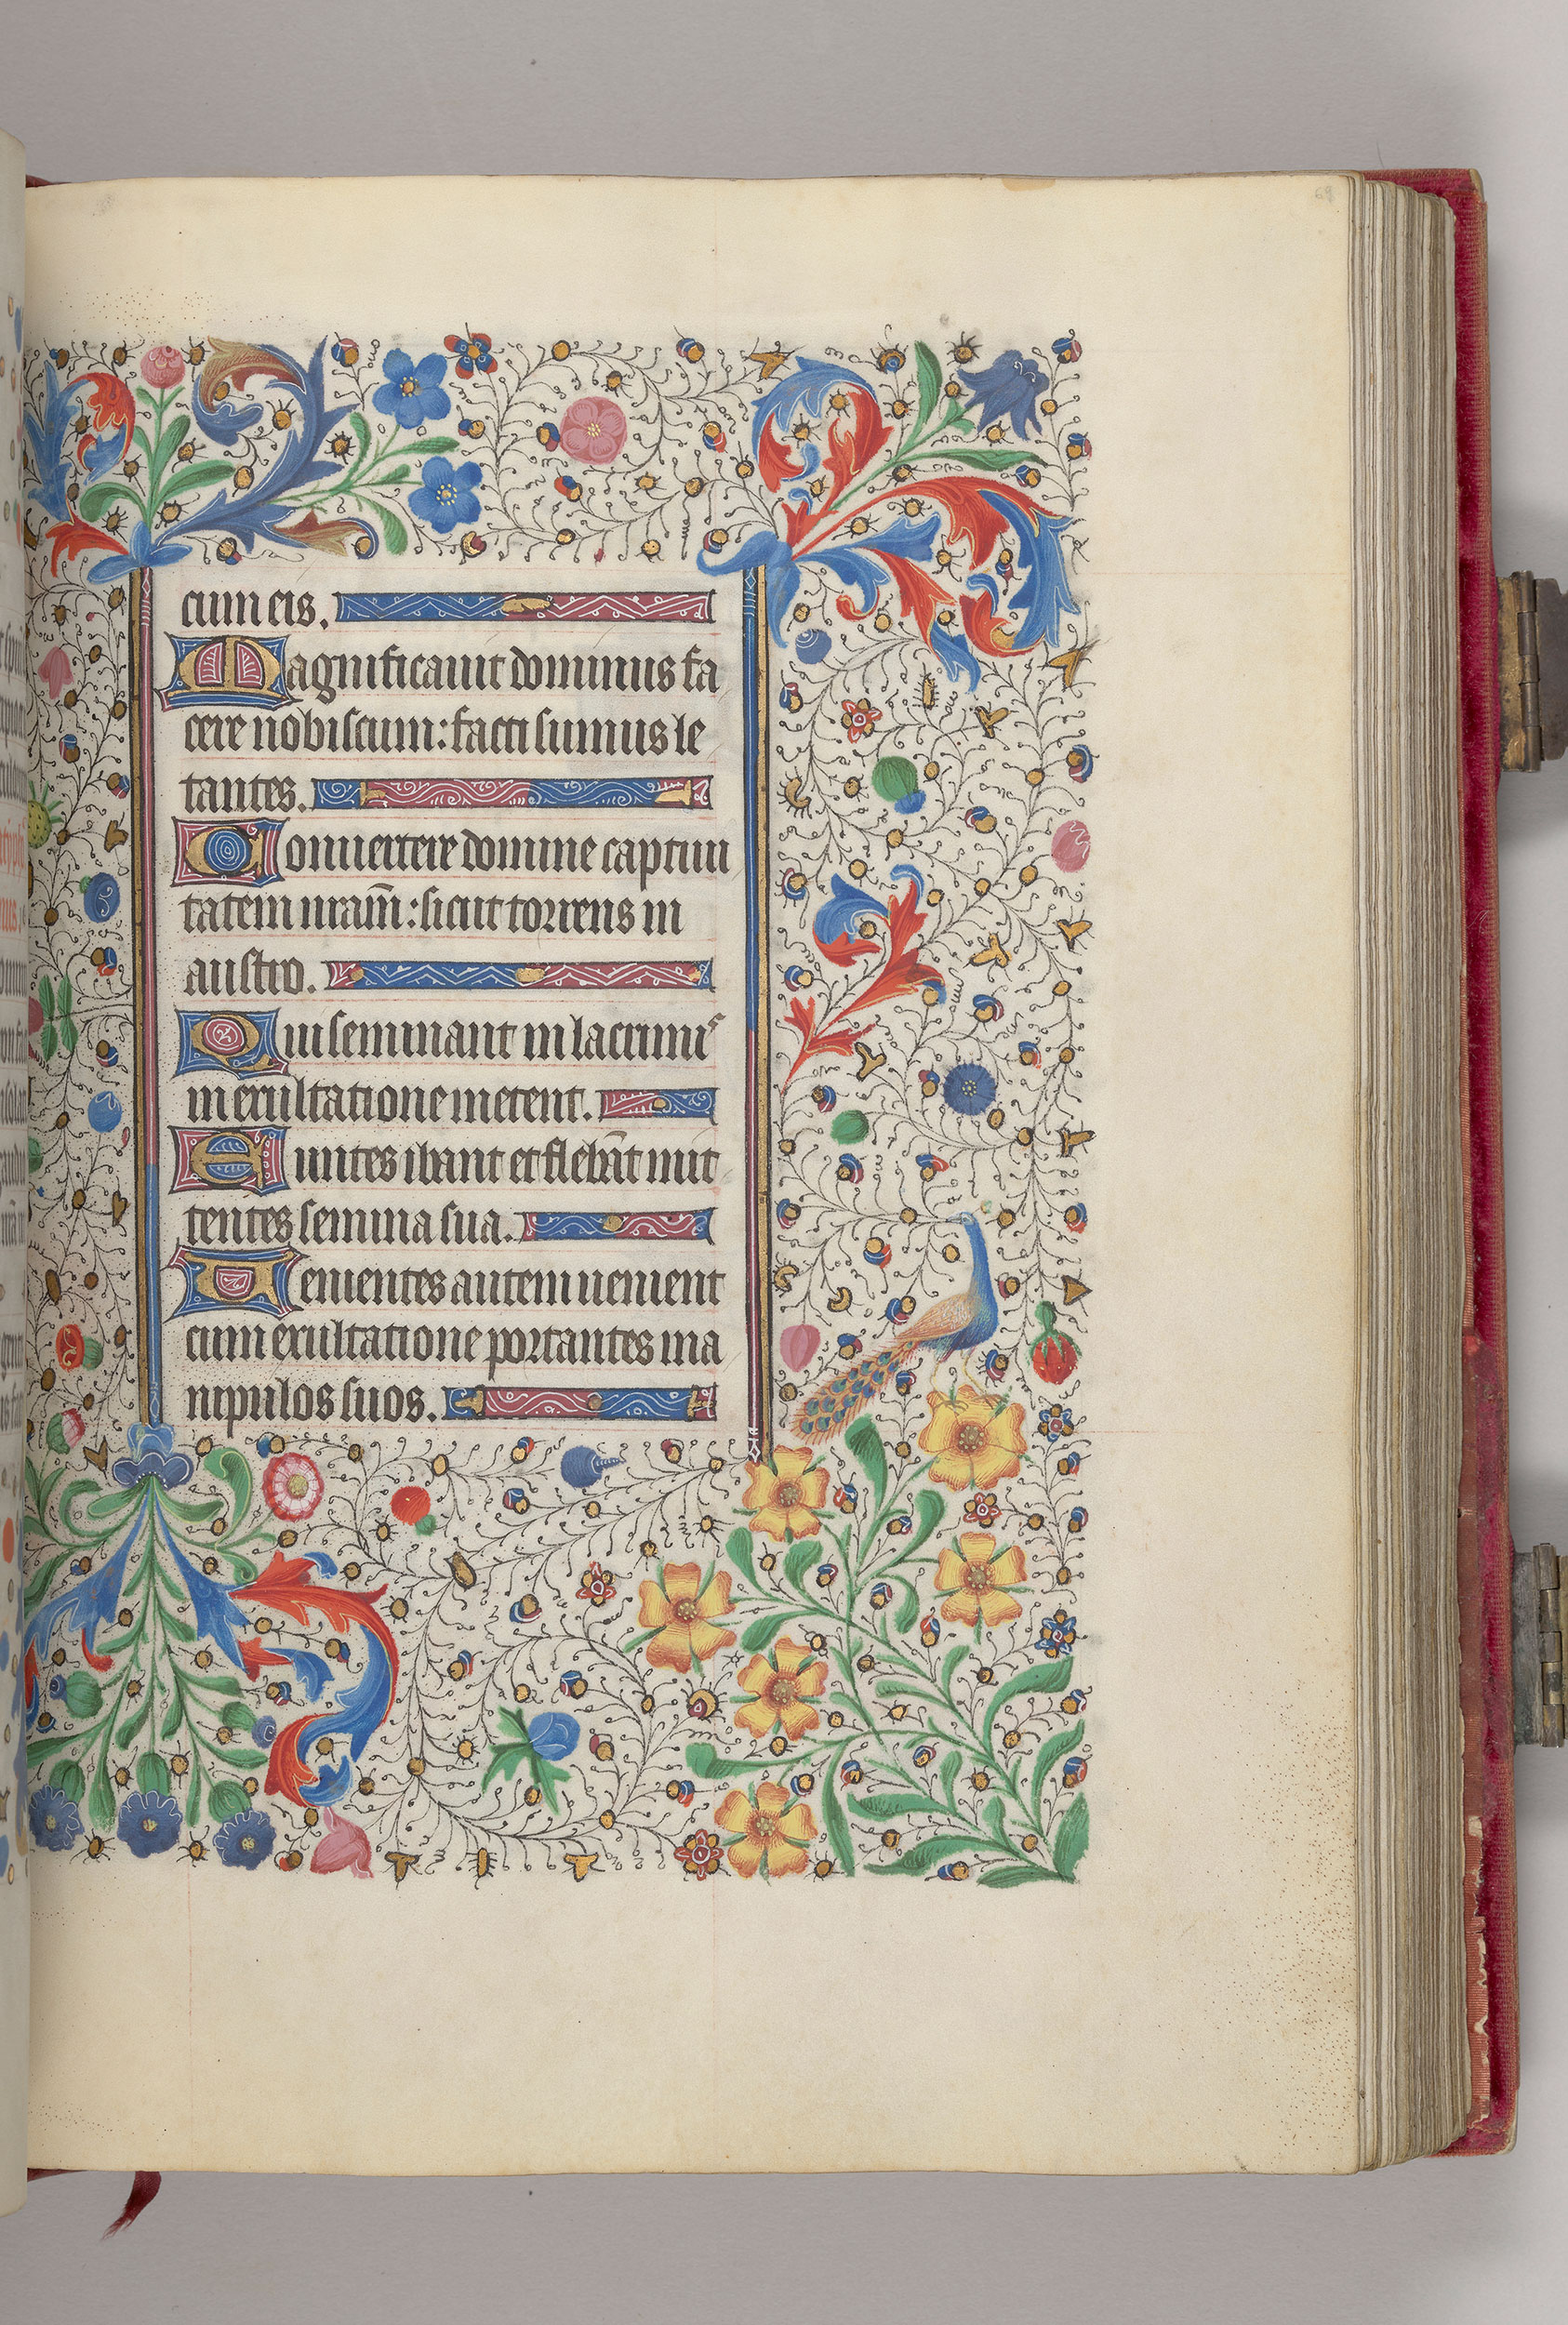 69
cum eis.
Magnificauit dominus fa
cere nobiscum: facti sumus le
tantes.
Conuertere domine captiui
tatem nram̄: sicut torrens in
austro.
Qui seminant in lacrimis
in exultatione metent.
Euntes ibant et flebāt mit
tentes semina sua.
Uenientes autem uenient
cum exultatione portantes ma
nipulos suos.